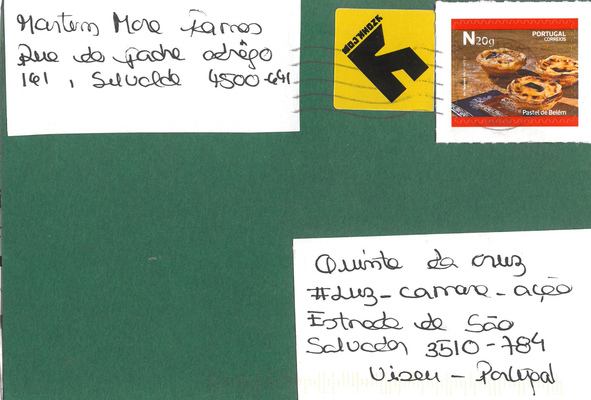 Martim More Ramos
Rua do Padre adrêgo
161, Silvalde 4500-641
N20g
PORTUGAL
CORREIOS
Pastel de Belém
Quinta da cruz
#Luz-camara-ação
Estrada de São
Salvador 3510-784
Viseu - Portugal